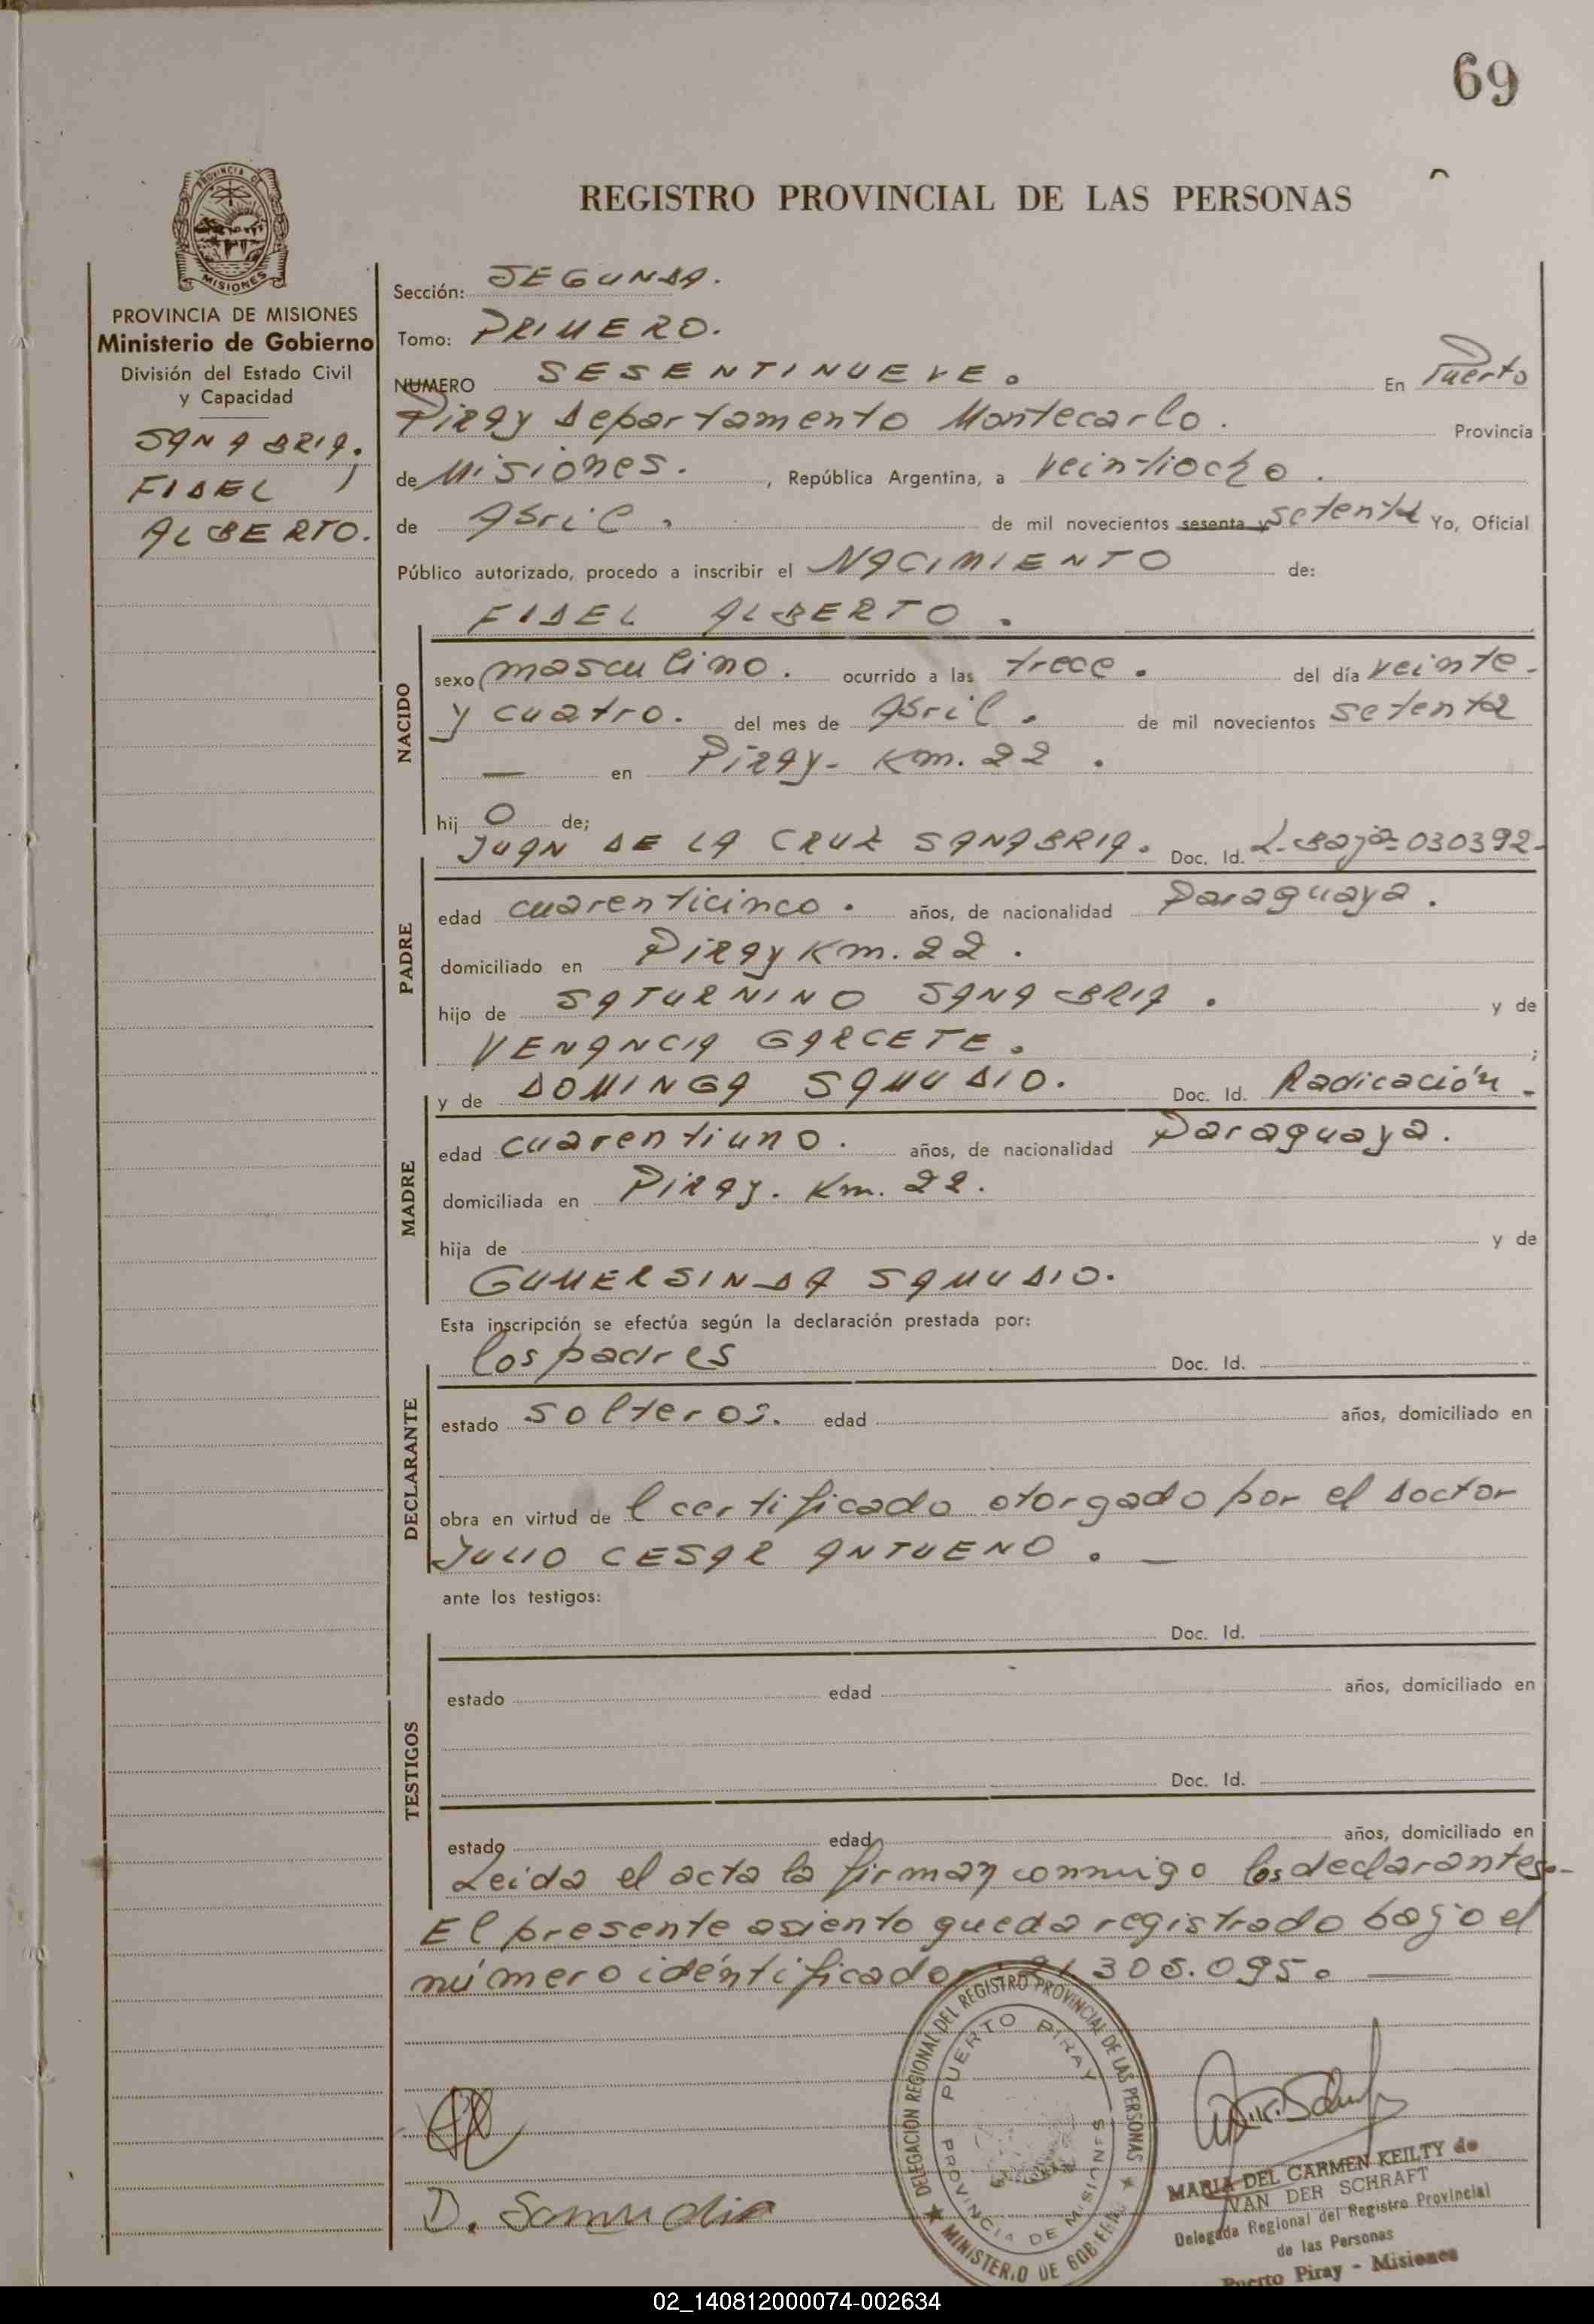 69
REGISTRO PROVINCIAL DE LAS PERSONAS
PROVINCIA DE MISIONES
PROVINCIA DE MISIONES
Ministerio de Gobierno
División del Estado Civil
y Capacidad
SANABRIA.
FIDEL
ALBERTO.
Sección: SEGUNDA.
Tomo: PRIMERO.
NUMERO SESENTINUEVE. En Puerto
Piray Departamento Montecarlo. Provincia
de Misiones. , República Argentina, a veintiocho.
de Abril. de mil novecientos sesenta y setenta Yo, Oficial
Público autorizado, procedo a inscribir el NACIMIENTO de:
FIDEL ALBERTO.
NACIDO
sexo masculino. ocurrido a las trece. del día veinte-
y cuatro. del mes de Abril. de mil novecientos setenta
— en Piray- Km. 22.
hij o de;
JUAN DE LA CRUZ SANABRIA. Doc. Id. L. Baja-030392-
PADRE
edad cuarenticinco. años, de nacionalidad Paraguaya.
domiciliado en Piray Km. 22.
hijo de SATURNINO SANABRIA. y de
VENANCIA GARCETE. ;
y de DOMINGA SAMUDIO. Doc. Id. Radicación.
MADRE
edad cuarentiuno. años, de nacionalidad Paraguaya.
domiciliada en Piray. Km. 22.
hija de y de
GUMERSINDA SAMUDIO.
Esta inscripción se efectúa según la declaración prestada por:
los padres Doc. Id.
DECLARANTE
estado solteros. edad años, domiciliado en
obra en virtud de l certificado otorgado por el doctor
JULIO CESAR ANTUENO. —
ante los testigos:
Doc. Id.
TESTIGOS
estado edad años, domiciliado en
Doc. Id.
estado edad años, domiciliado en
Leida el acta la firman conmigo los declarantes.-
El presente asiento queda registrado bajo el
número identificador: 21.305.095. —
DELEGACIÓN REGIONAL DEL REGISTRO PROVINCIAL DE LAS PERSONAS
PUERTO PIRAY
PROVINCIA DE MISIONES
MINISTERIO DE GOBIERNO
D. Samudio
MARIA DEL CARMEN KEILTY de
VAN DER SCHRAFT
Delegada Regional del Registro Provincial
de las Personas
Puerto Piray - Misiones
02_140812000074-002634